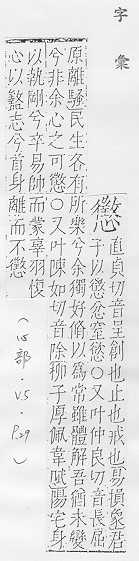 字彙
懲
直貞切音呈創也止也戒也易損象君
子以懲忿窒慾〇又叶仲良切音長屈
原離騷民生各有所樂兮余獨好脩以爲常雖體解吾猶未變
兮非余心之可懲〇又叶陳如切音除柳子厚佩韋賦陽宅身
以執剛兮卒易師而蒙辜羽愎
心以盭志兮首身離而不懲
(心部.V5.P.29)